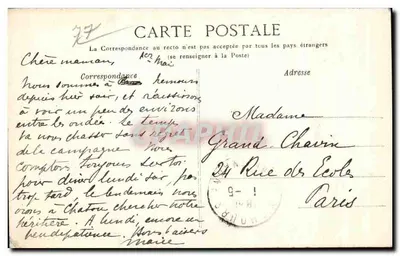 77
CARTE POSTALE
La Correspondance au recto n'est pas acceptée par tous les pays étrangers
(se renseigner à la Poste)
Correspondance
Adresse
1er Mai
Chère maman,
Nous sommes à Nemours
depuis hier soir, et réussissons
à voir un peu des environs
entre les ondées. le temps
va nous chasser sans
de la campagne Nous
comptons toujours sur toi
pour dîner lundi soir pas
trop tard. le lendemain nous
irons à Chatou chercher notre
héritière. A lundi, encore un
peu de patience. Bons baisers
Marie
Madame
Grand-Chavin
24 Rue des Ecoles
Paris